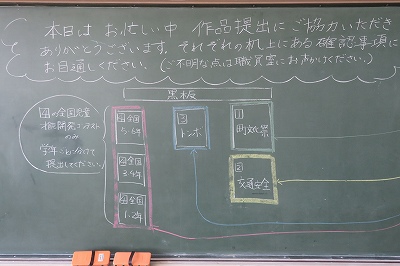 本日は お忙しい中 作品提出にご協力いただき
ありがとうございます。それぞれの机上にある確認事項に
お目通しください。(ご不明な点は職員室にお声がけください。)
黒板
4の全国児童
才能開発コンテスト
のみ
学年に分けて
提出してください
4全国
5・6年
4全国
3・4年
4全国
1・2年
3
トンボ
1
町文化祭
2
交通安全